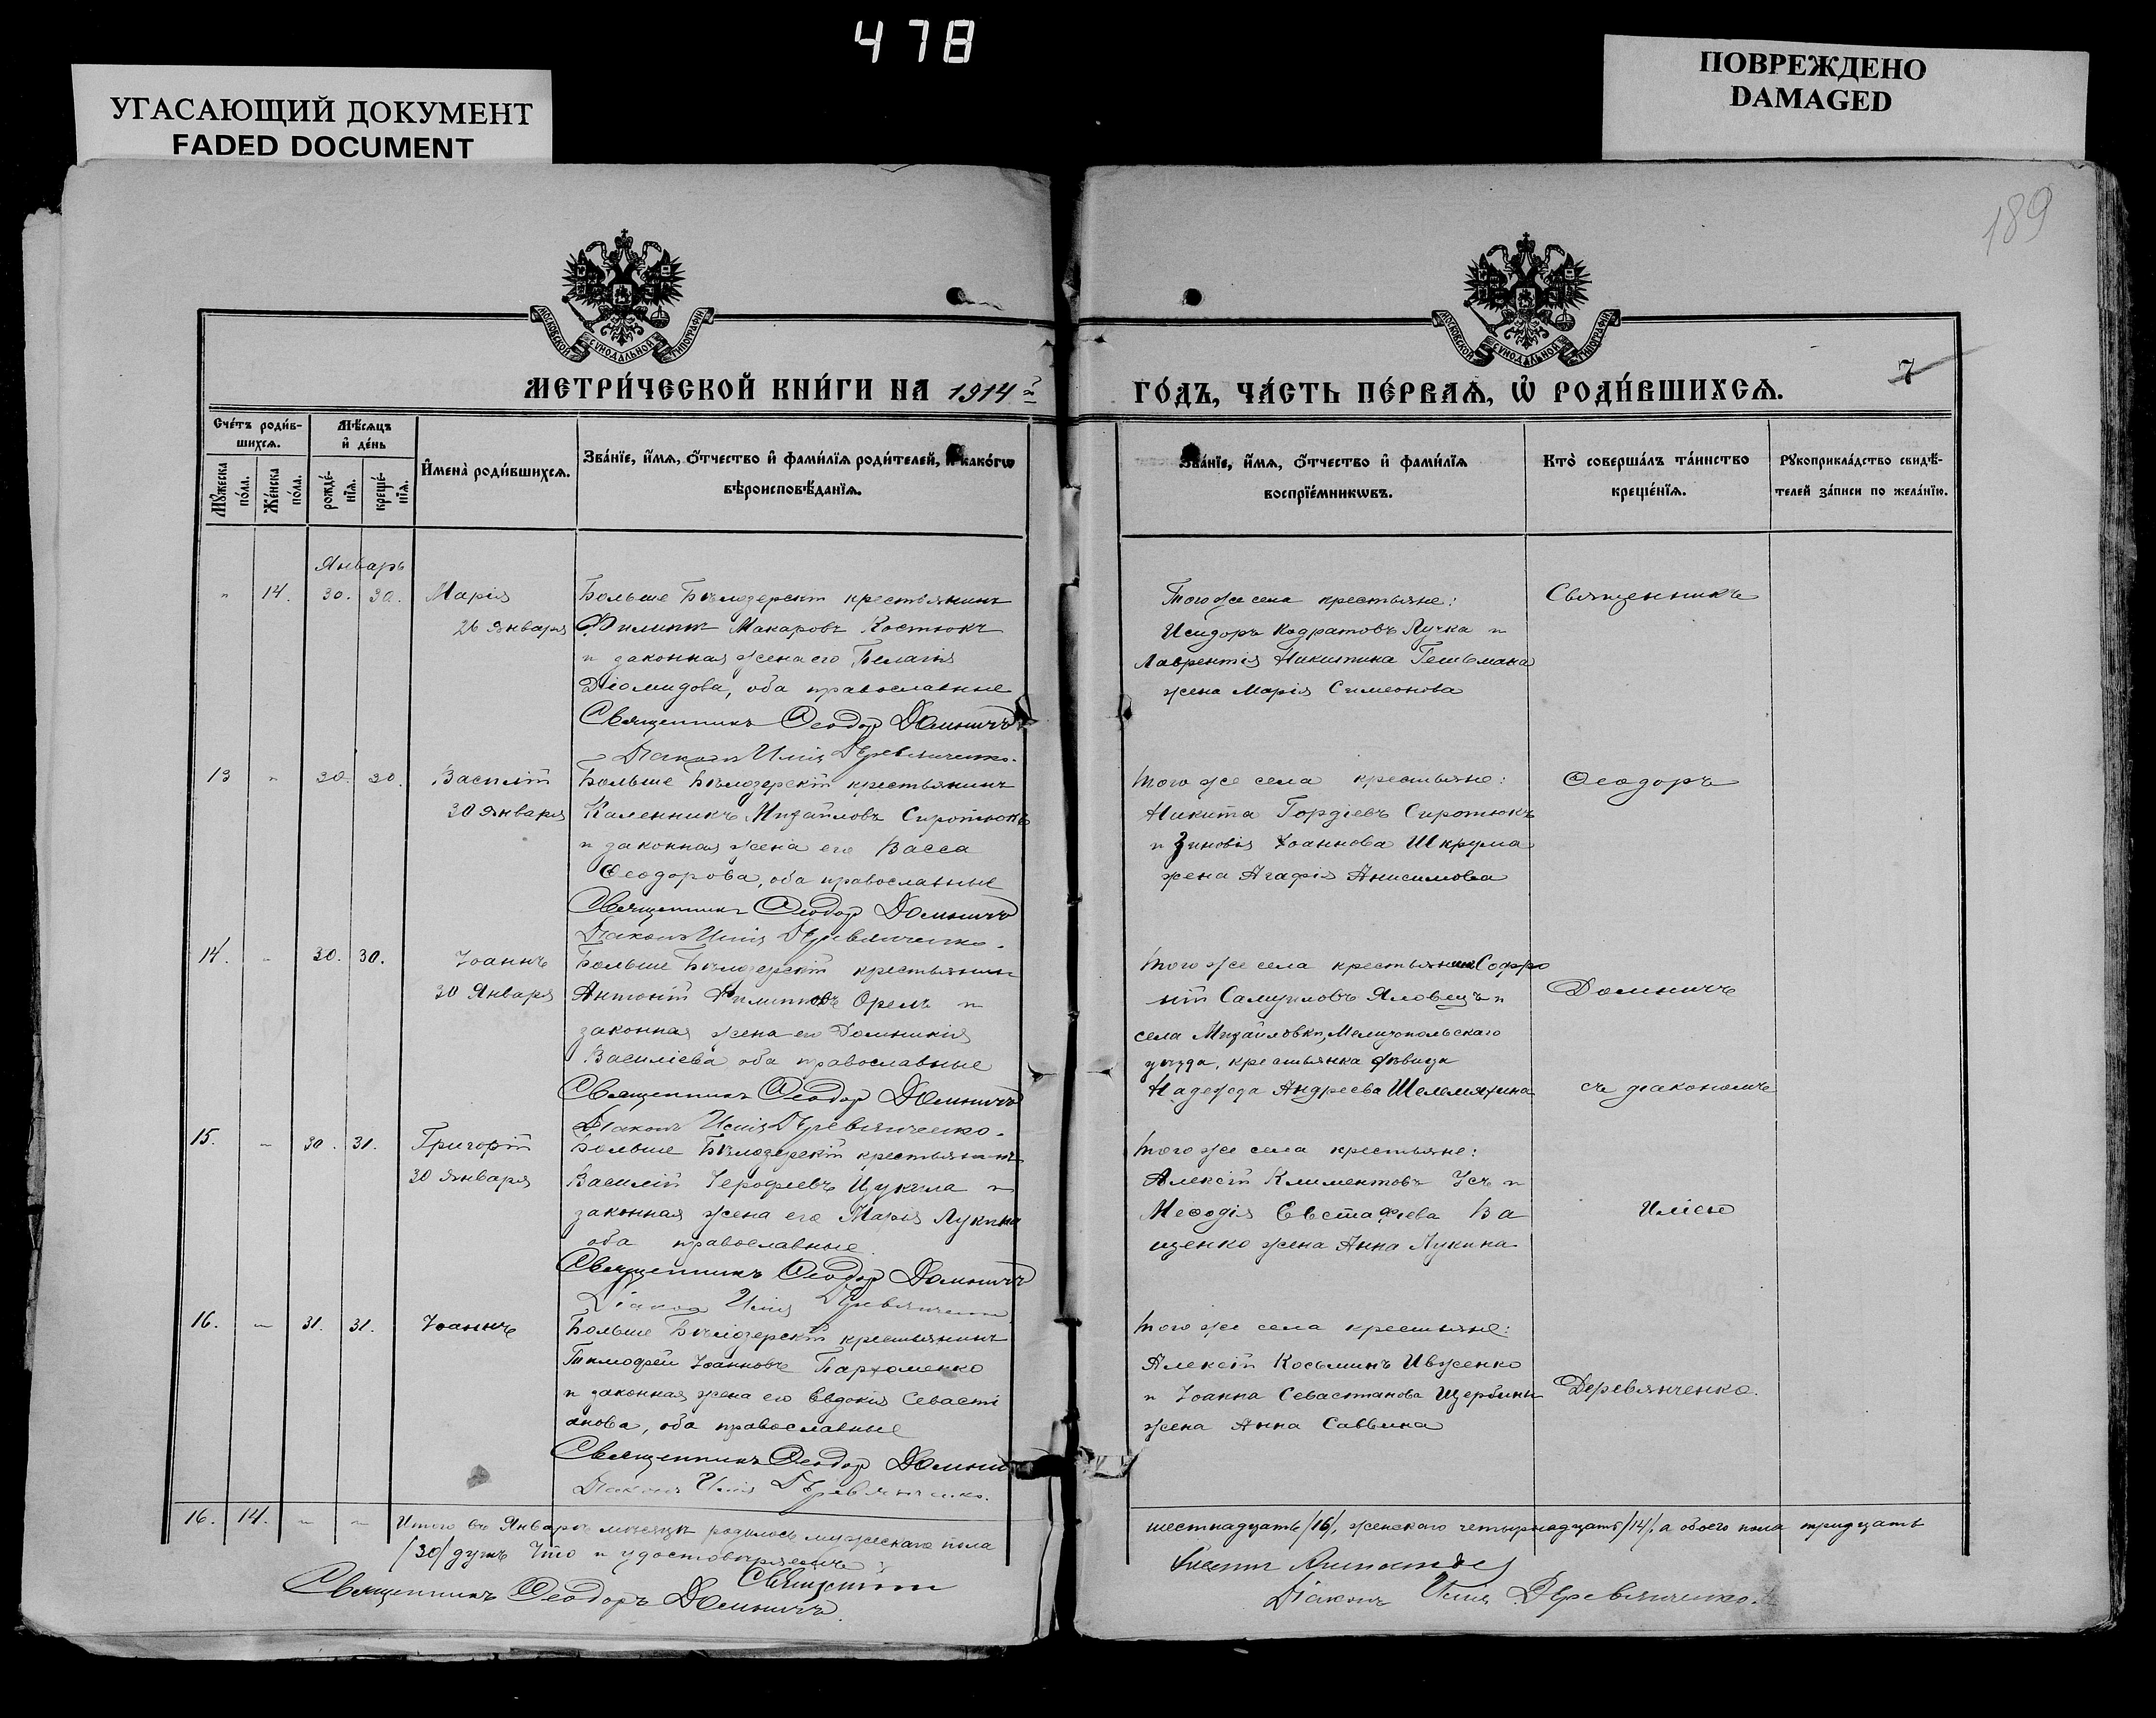 478
УГАСАЮЩИЙ ДОКУМЕНТ
FADED DOCUMENT
ПОВРЕЖДЕНО
DAMAGED
189
МОСКОВСКОЙ СѴНОДАЛЬНОЙ ТИПОГРАФІИ
МОСКОВСКОЙ СѴНОДАЛЬНОЙ ТИПОГРАФІИ
7
МЕТРИ́ЧЕСКОЙ КНИ́ГИ НА 1914 г
ГО́ДЪ, ЧА́СТЬ ПЕ́РВАѦ, Ѡ҆ РОДИ́ВШИХСѦ.
Сче́тъ роди́в-
шихсѧ.
Мѣ́сѧцъ
и҆ де́нь
Мꙋ́жеска
по́ла.
Же́нска
по́ла.
рожде́-
нїѧ.
креще́-
нїѧ.
И҆мена̀ роди́вшихсѧ.
Зва́нїе, и҆́мѧ, ѻ҆́тчество и҆ фами́лїѧ роди́телей, и҆ како́гѡ
вѣроисповѣ́данїѧ.
Зва́нїе, и҆́мѧ, ѻ҆́тчество и҆ фами́лїѧ
воспрїе́мникѡвъ.
Кто̀ соверша́лъ та́инство
креще́нїѧ.
Рꙋкоприкла́дство свидѣ́-
телей за́писи по жела́нїю.
Январь
" 14. 30. 30. Марія
26 Января
Больше Бѣлозерскій крестьянинъ
Филиппъ Макаровъ Костюкъ
и законная жена его Пелагія
Діомидова, оба православные
Священникъ Ѳеодоръ Доминичъ
Діаконъ Илія Деревянченко.
Того же села крестьяне:
Исидоръ Кодратовъ Лучка и
Лаврентія Никитина Гетьмана
жена Марія Симеонова
Священникъ
13 " 30. 30. Василій
30 Января
Больше Бѣлозерскій крестьянинъ
Каленникъ Михайловъ Сиротюкъ
и законная жена его Васса
Ѳеодорова, оба православные
Священникъ Ѳеодоръ Доминичъ
Діаконъ Илія Деревянченко.
того же села крестьяне:
Никита Гордіевъ Сиротюкъ
и Зиновія Іоаннова Шкрума
жена Агафія Анисимова
Ѳеодоръ
14. " 30. 30. Іоаннъ
30 Января
Больше Бѣлозерскій крестьянинъ
Антоній Филипповъ Орелъ и
законная жена его Домникія
Василіева оба православные
Священникъ Ѳеодоръ Доминичъ
Діаконъ Илія Деревянченко.
того же села крестьянинъ Софро
ній Самуиловъ Яловецъ и
села Михайловки, Мелитопольскаго
уѣзда, крестьянка дѣвица
Надежда Андреева Шелемяхина
Доминичъ
съ діакономъ
15. " 30. 31. Григорій
30 Января
Больше Бѣлозерскій крестьянинъ
Василій Іерофеевъ Цукила и
законная жена его Марія Лукина
оба православные
Священникъ Ѳеодоръ Доминичъ
Діаконъ Илія Деревянченко
того же села крестьяне:
Алексій Климентовъ Усъ и
Меѳодія Евстафіева Ва
щенко жена Анна Лукина
Иліею
16. " 31. 31. Іоаннъ
Больше Бѣлозерскій крестьянинъ
Тимофей Іоанновъ Пархоменко
и законная жена его Евдокія Севасті
анова, оба православные
Священникъ Ѳеодоръ Домини
Діаконъ Илія Деревянченко.
того же села крестьяне:
Алексій Косьминъ Ивженко
и Іоанна Севастіанова Щербины
жена Анна Саввина
Деревянченко.
16. 14. " " Итого въ Январѣ мѣсяцѣ родилось мужескаго пола
шестнадцать /16/, женскаго четырнадцать /14/, а обоего пола тридцать
/30/ душъ Что и удостовѣряемъ:
Священникъ Ѳеодоръ Доминичъ.
Діаконъ Илія Деревянченко.